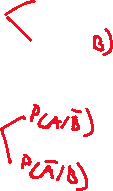 B)
P(A/B̅)
P(A̅/B)